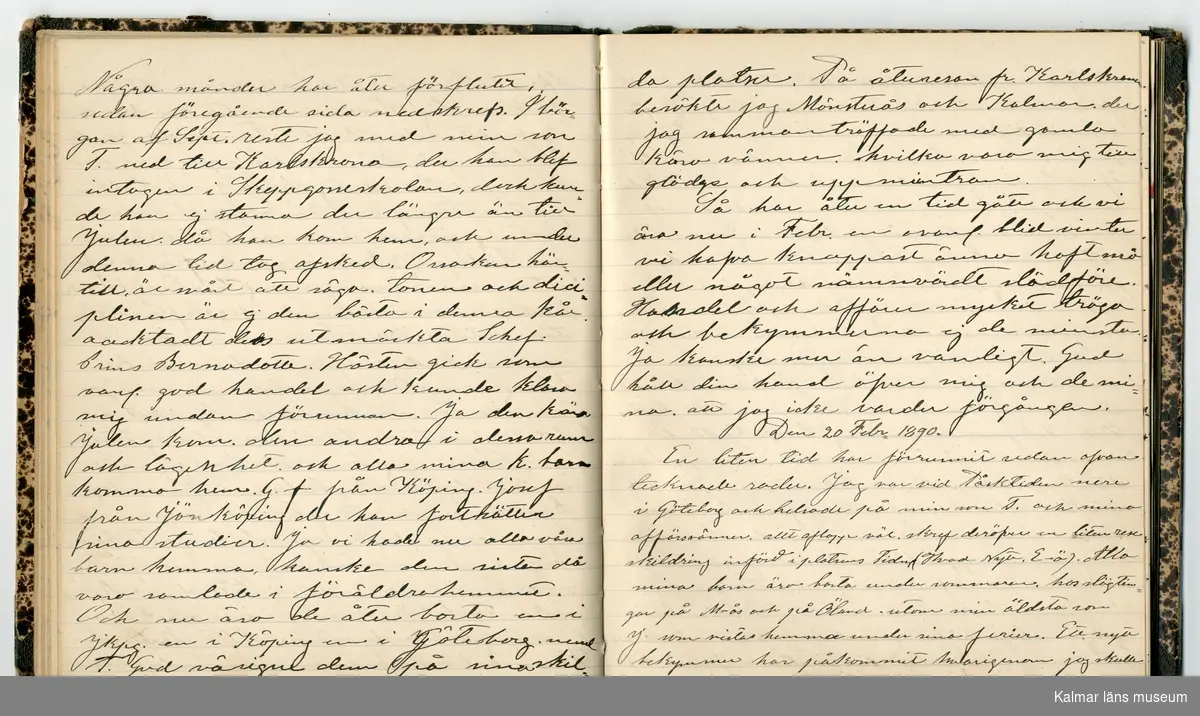 Några månder har åter förflutit,
sedan föregående sida nedskrefs. I bör-
jan af Sept. reste jag med min son
T. ned till Karlskrona, der han blef
intagen i Skeppgosseskolan, dock kun-
de han ej stanna der längre än till
Julen. då han kom hem, och under
denna tid tog afsked. Orsaken här-
till, är svårt att säga. Tonen och dici-
plinen är ej den bästa i denna kår.
oacktadt dess utmäckta Schef.
Prins Bernadotte. Hösten gick som
vanl. god handel och kunde klara
mig undan förrunnan. Ja den kära
Julen kom. den andra i dessa rum
och lägenhet. och alla mina k. barn
komma hem. G. f från Köping. Josef
från Jönköping der han forthätter
sina studier. Ja vi hade nu alla våra
barn hemma, kanske den sista då
voro samlade i föräldrahemmet.
Och nu äro de åter borta en i
Jkpg. en i Köping en i Göteborg. neml
T. Gud välsigne dem på sina skil-
da platser. På återresan fr. Karlskrona
besökte jag Mönsterås och Kalmar. der
jag sammanträffade med gamla
kära vänner. hvilka voro mig till
glädje och uppmuntran.
Så har åter en tid gått och vi
äro nu i Febr. en ovanl. blid vinter
vi hafva knappast ännu haft snö
eller något nämnvärdt slädföre.
Handel och affärer mycket tröga
och bekymmerna ej de minsta.
Ja kanske mer än vanligt. Gud
håll din hand öfver mig och de mi-
na. att jag icke varder förgången.
Den 20 Febr. 1890.
En liten tid har förrunnit sedan ofvan
tecknade rader. Jag var vid Påsktiden nere
i Göteborg och helsade på min son T. och mina
affärsvänner, allt aflopp väl. skref deröfver en liten rese
skildring införd i platsens Tidn. (Hvad Nytt, E-ö). Alla
mina barn äro borta under sommaren, hos slägtin-
gar på M-ås och på Öland. utom min äldsta son
J. som vistas hemma under sina ferier. Ett nytt
bekymmer har påkommit hvarigenom jag skulle
Kalmar läns museum